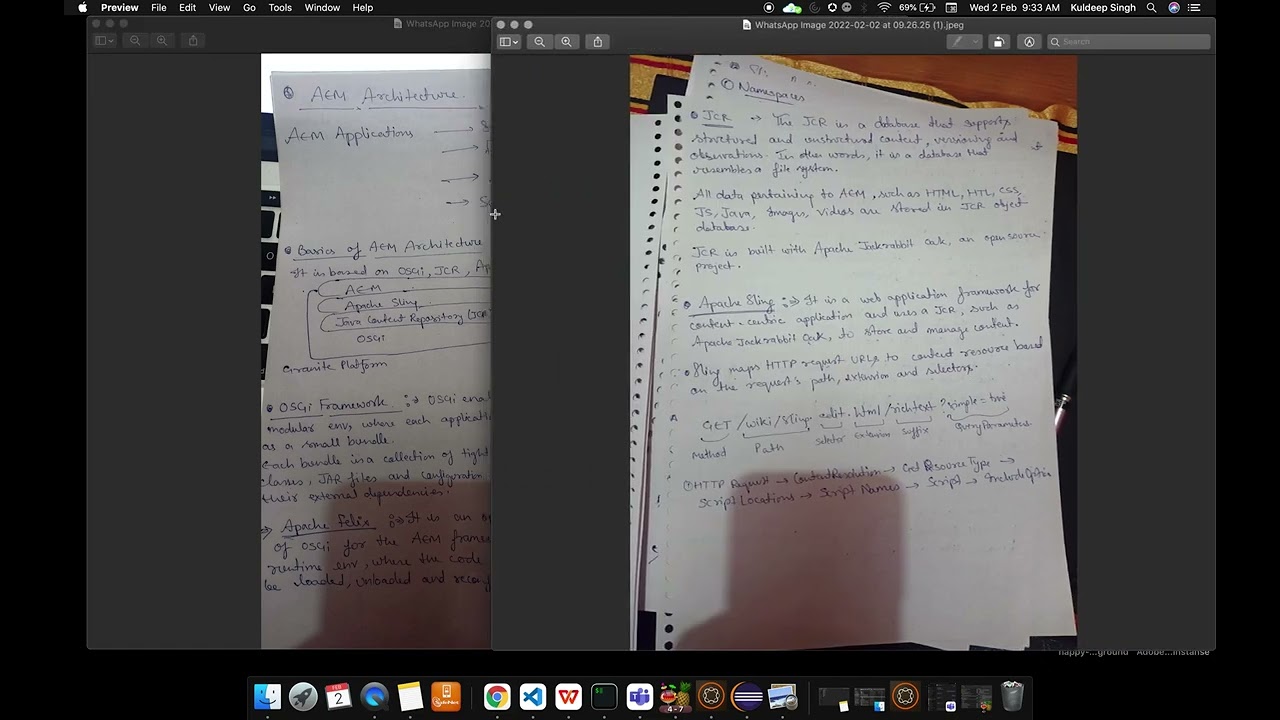 Preview File Edit Go Tools Window Help
69% Wed 2 Feb 9:33 AM Kuldeep Singh
WhatsApp Image 20
WhatsApp Image 2022-02-02 at 09.26.25 (1).jpeg
Search
AEM Architecture.
AEM Applications
Basics of AEM Architecture
It is based on OSGi, JCR, Ap
AEM
Apache Sling
Java Content Repository (JCR)
OSGi
Granite Platform
OSGi Framework :→ OSGi ena
modular env, where each applicat
as a small bundle.
Each bundle is a collection of tight
classes, JAR files and configuration
their external dependencies.
Apache Felix :→ It is an op
of OSGi for the AEM frame
runtime env, where the code
be loaded, unloaded and recon
Namespaces
JCR → The JCR is a database that supports
structured and unstructured content, versioning and
observations. In other words, it is a database that
resembles a file system.
All data pertaining to AEM, such as HTML, HTL, CSS,
JS, Java, Images, Videos are stored in JCR object
database.
JCR is built with Apache Jackrabbit Oak, an open source
project.
Apache Sling :→ It is a web application framework for
content-centric application and uses a JCR, such as
Apache Jackrabbit Oak, to store and manage content.
Sling maps HTTP request URLs to content resource based
on the request's path, extension and selectors.
GET /wiki/Sling. edit. html /richtext ? simple = true
Method Path Selector Extension Suffix Query Parameters
HTTP Request → Content Resolution → Get Resource Type →
Script Locations → Script Names → Script → Include Option
happy-...ground Adobe...instanse
FEB
2
4-7